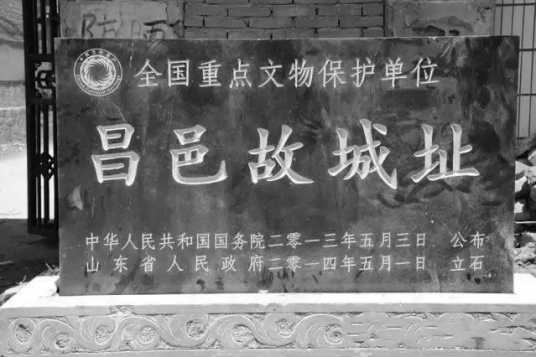 全国重点文物保护单位
昌邑故城址
中华人民共和国国务院二零一三年五月三日 公布
山东省人民政府二零一四年五月一日 立石